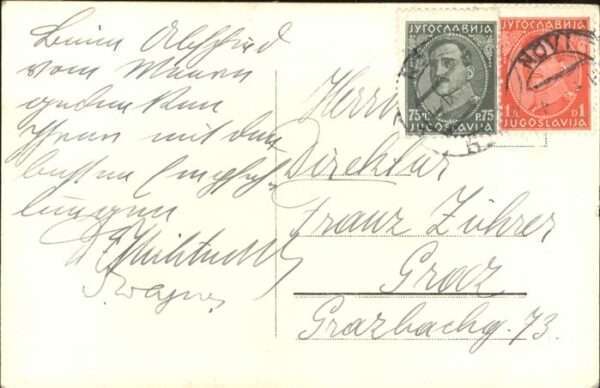 Beim Abschied
vom Meere
gedenken
Ihnen mit den
besten Empfeh-
lungen
S. Wagner
ЈУГОСЛАВИЈА
75 П. P. 75
JUGOSLAVIJA
ЈУГОСЛАВИЈА
1 Д. D 1
JUGOSLAVIJA
NOVI
Herrn
Direktor
Franz Zührer
Graz
Grazbachg. 73.